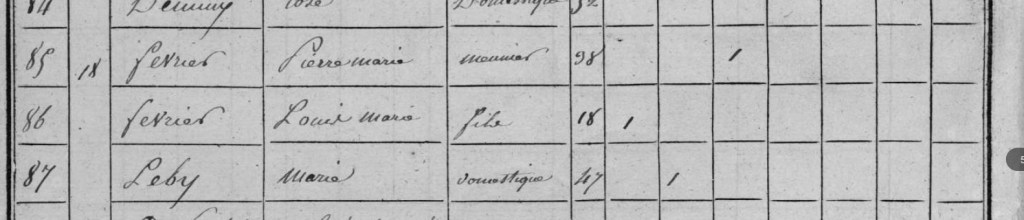 84 Rose Domestique 52
85 18 fevrier Pierre marie meunier 98 1
86 fevrier Louis marie fils 18 1
87 Leby marie domestique 47 1